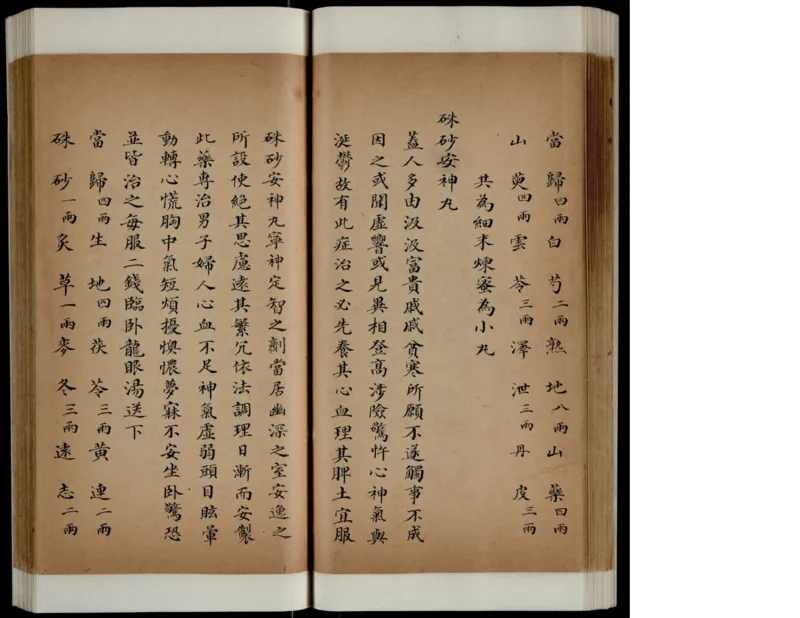 當歸四兩白芍二兩熟地八兩山藥四兩
山萸四兩雲苓三兩澤泄三兩丹皮三兩
共為細末煉蜜為小丸
硃砂安神丸
蓋人多由汲汲富貴戚戚貧寒所願不遂觸事不成
因之或聞虛響或見異相登高涉險驚忤心神氣與
涎鬱故有此症治之必先養其心血理其脾土宜服
硃砂安神丸寧神定智之劑當居幽深之室安逸之
所設使絕其思慮遠其繁冗依法調理日漸而安製
此藥專治男子婦人心血不足神氣虛弱頭目眩暈
動轉心慌胸中氣短煩擾懊憹夢寐不安坐臥驚恐
並皆治之每服二錢臨臥龍眼湯送下
當歸四兩生地四兩茯苓三兩黃連二兩
硃砂一兩炙草一兩麥冬三兩遠志二兩